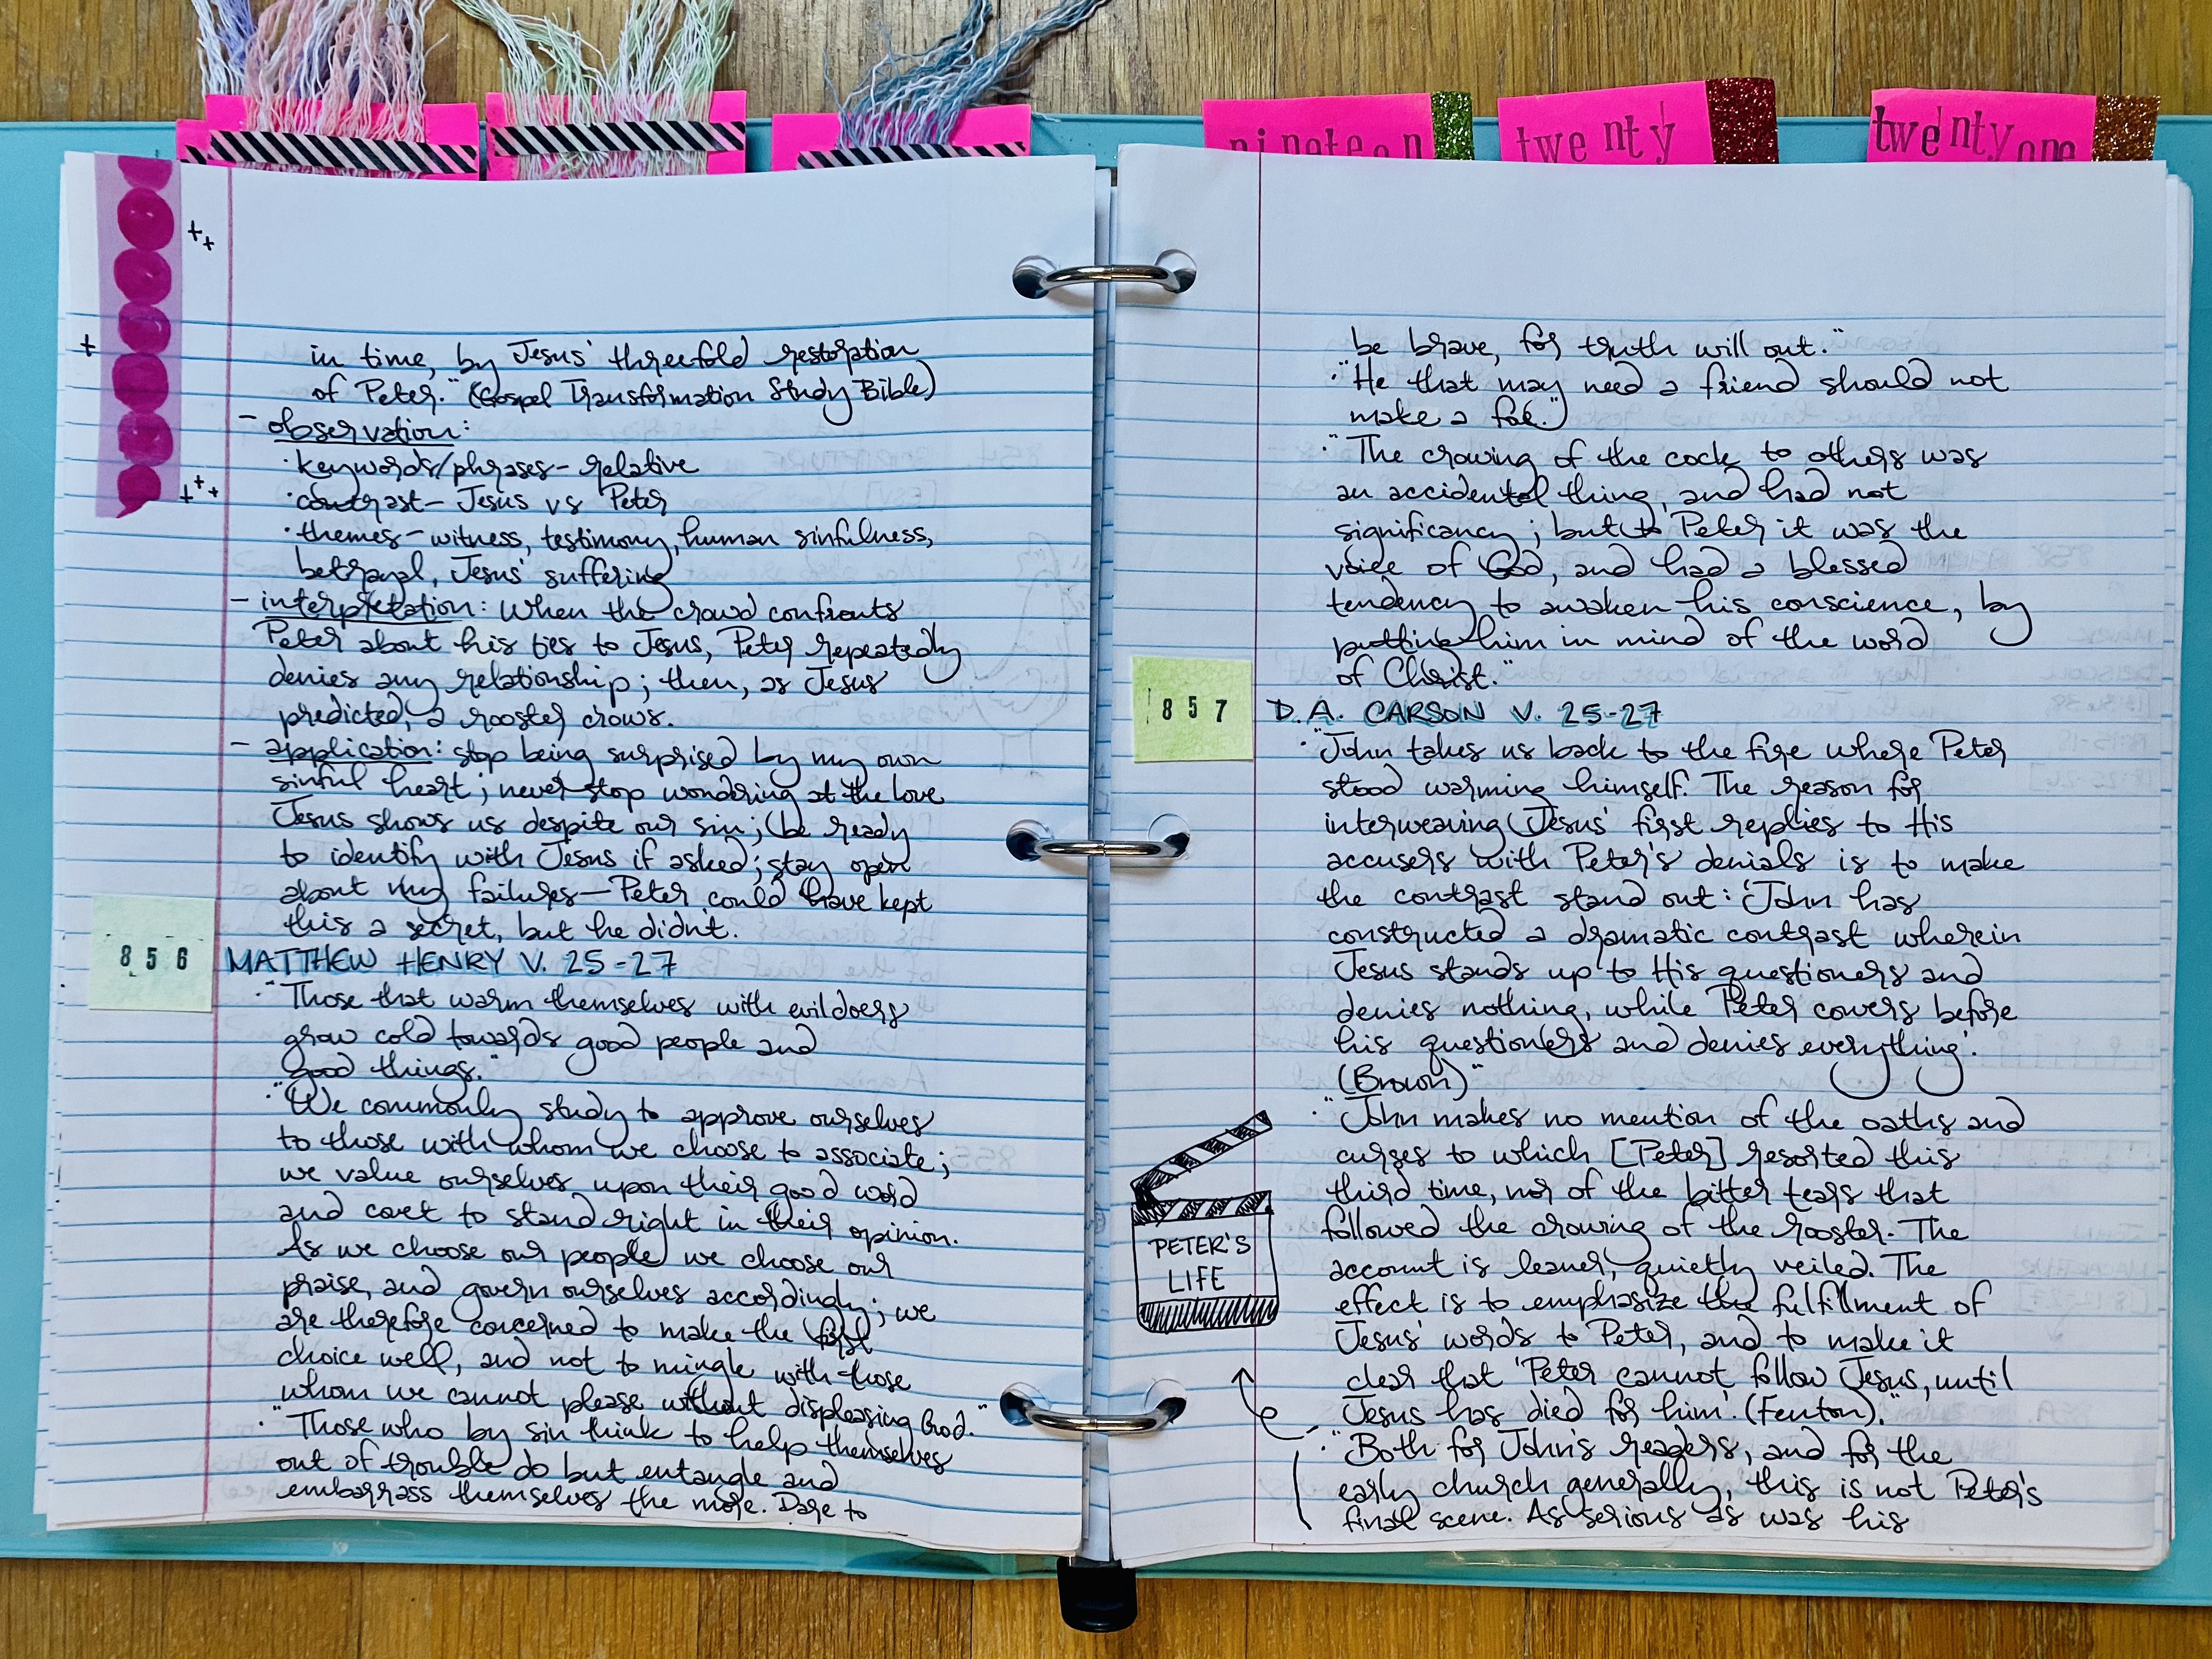 nineteen
twenty
twenty one
in time, by Jesus' threefold restoration
of Peter." (Gospel Transformation Study Bible)
- observation:
· keywords/phrases - relative
· contrast - Jesus vs Peter
· themes - witness, testimony, human sinfulness,
betrayal, Jesus' suffering
- interpretation: When the crowd confronts
Peter about his ties to Jesus, Peter repeatedly
denies any relationship; then, as Jesus
predicted, a rooster crows.
- application: stop being surprised by my own
sinful heart; never stop wondering at the love
Jesus shows us despite our sin; be ready
to identify with Jesus if asked; stay open
about my failures — Peter could have kept
this a secret, but he didn't.
856
MATTHEW HENRY V. 25-27
· "Those that warm themselves with evildoers
grow cold towards good people and
good things."
· "We commonly study to approve ourselves
to those with whom we choose to associate;
we value ourselves upon their good word
and covet to stand right in their opinion.
As we choose our people we choose our
praise, and govern ourselves accordingly; we
are therefore concerned to make the first
choice well, and not to mingle with those
whom we cannot please without displeasing God."
· "Those who by sin think to help themselves
out of trouble do but entangle and
embarrass themselves the more. Dare to
be brave, for truth will out."
· "He that may need a friend should not
make a foe."
· "The crowing of the cock to others was
an accidental thing, and had not
significancy; but to Peter it was the
voice of God, and had a blessed
tendency to awaken his conscience, by
putting him in mind of the word
of Christ."
857
D.A. CARSON V. 25-27
· "John takes us back to the fire where Peter
stood warming himself. The reason for
interweaving Jesus' first replies to His
accusers with Peter's denials is to make
the contrast stand out: 'John has
constructed a dramatic contrast wherein
Jesus stands up to His questioners and
denies nothing, while Peter cowers before
his questioners and denies everything'.
(Brown)"
· "John makes no mention of the oaths and
curses to which [Peter] resorted this
third time, nor of the bitter tears that
followed the crowing of the rooster. The
account is leaner, quietly veiled. The
effect is to emphasize the fulfillment of
Jesus' words to Peter, and to make it
clear that 'Peter cannot follow Jesus, until
Jesus has died for him'. (Fenton)."
· "Both for John's readers, and for the
early church generally, this is not Peter's
final scene. As serious as was his
PETER'S
LIFE